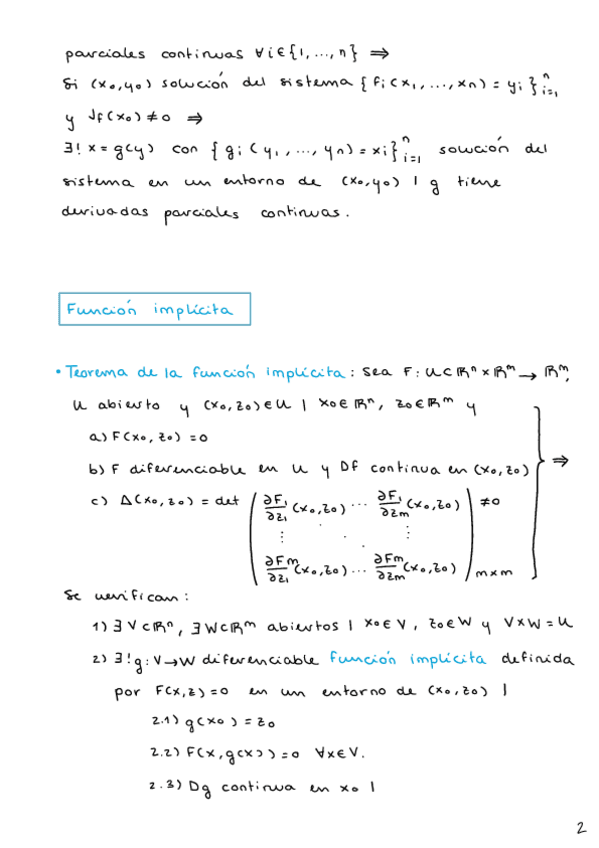 parciales continuas ∀i∈{1,...,n} ⇒
Si (x₀,y₀) solución del sistema {fᵢ(x₁,...,xₙ) = yᵢ}ⁿᵢ₌₁
y Jf(x₀) ≠ 0 ⇒
∃! x = g(y) con {gᵢ(y₁,...,yₙ) = xᵢ}ⁿᵢ₌₁ solución del
sistema en un entorno de (x₀,y₀) | g tiene
derivadas parciales continuas.
Función implícita
• Teorema de la función implícita: Sea F: U⊂ℝⁿ×ℝᵐ → ℝᵐ,
U abierto y (x₀,z₀)∈U | x₀∈ℝⁿ, z₀∈ℝᵐ y
a) F(x₀,z₀) = 0
b) F diferenciable en U y DF continua en (x₀,z₀) ⇒
c) Δ(x₀,z₀) = det ( ∂F₁/∂z₁ (x₀,z₀) ... ∂F₁/∂zm (x₀,z₀) ) ≠ 0
⋮ ⋱ ⋮
∂Fm/∂z₁ (x₀,z₀) ... ∂Fm/∂zm (x₀,z₀) m×m
Se verifican:
1) ∃V⊂ℝⁿ, ∃W⊂ℝᵐ abiertos | x₀∈V, z₀∈W y V×W = U
2) ∃!g: V→W diferenciable función implícita definida
por F(x,z) = 0 en un entorno de (x₀,z₀) |
2.1) g(x₀) = z₀
2.2) F(x,g(x)) = 0 ∀x∈V.
2.3) Dg continua en x₀ |
2